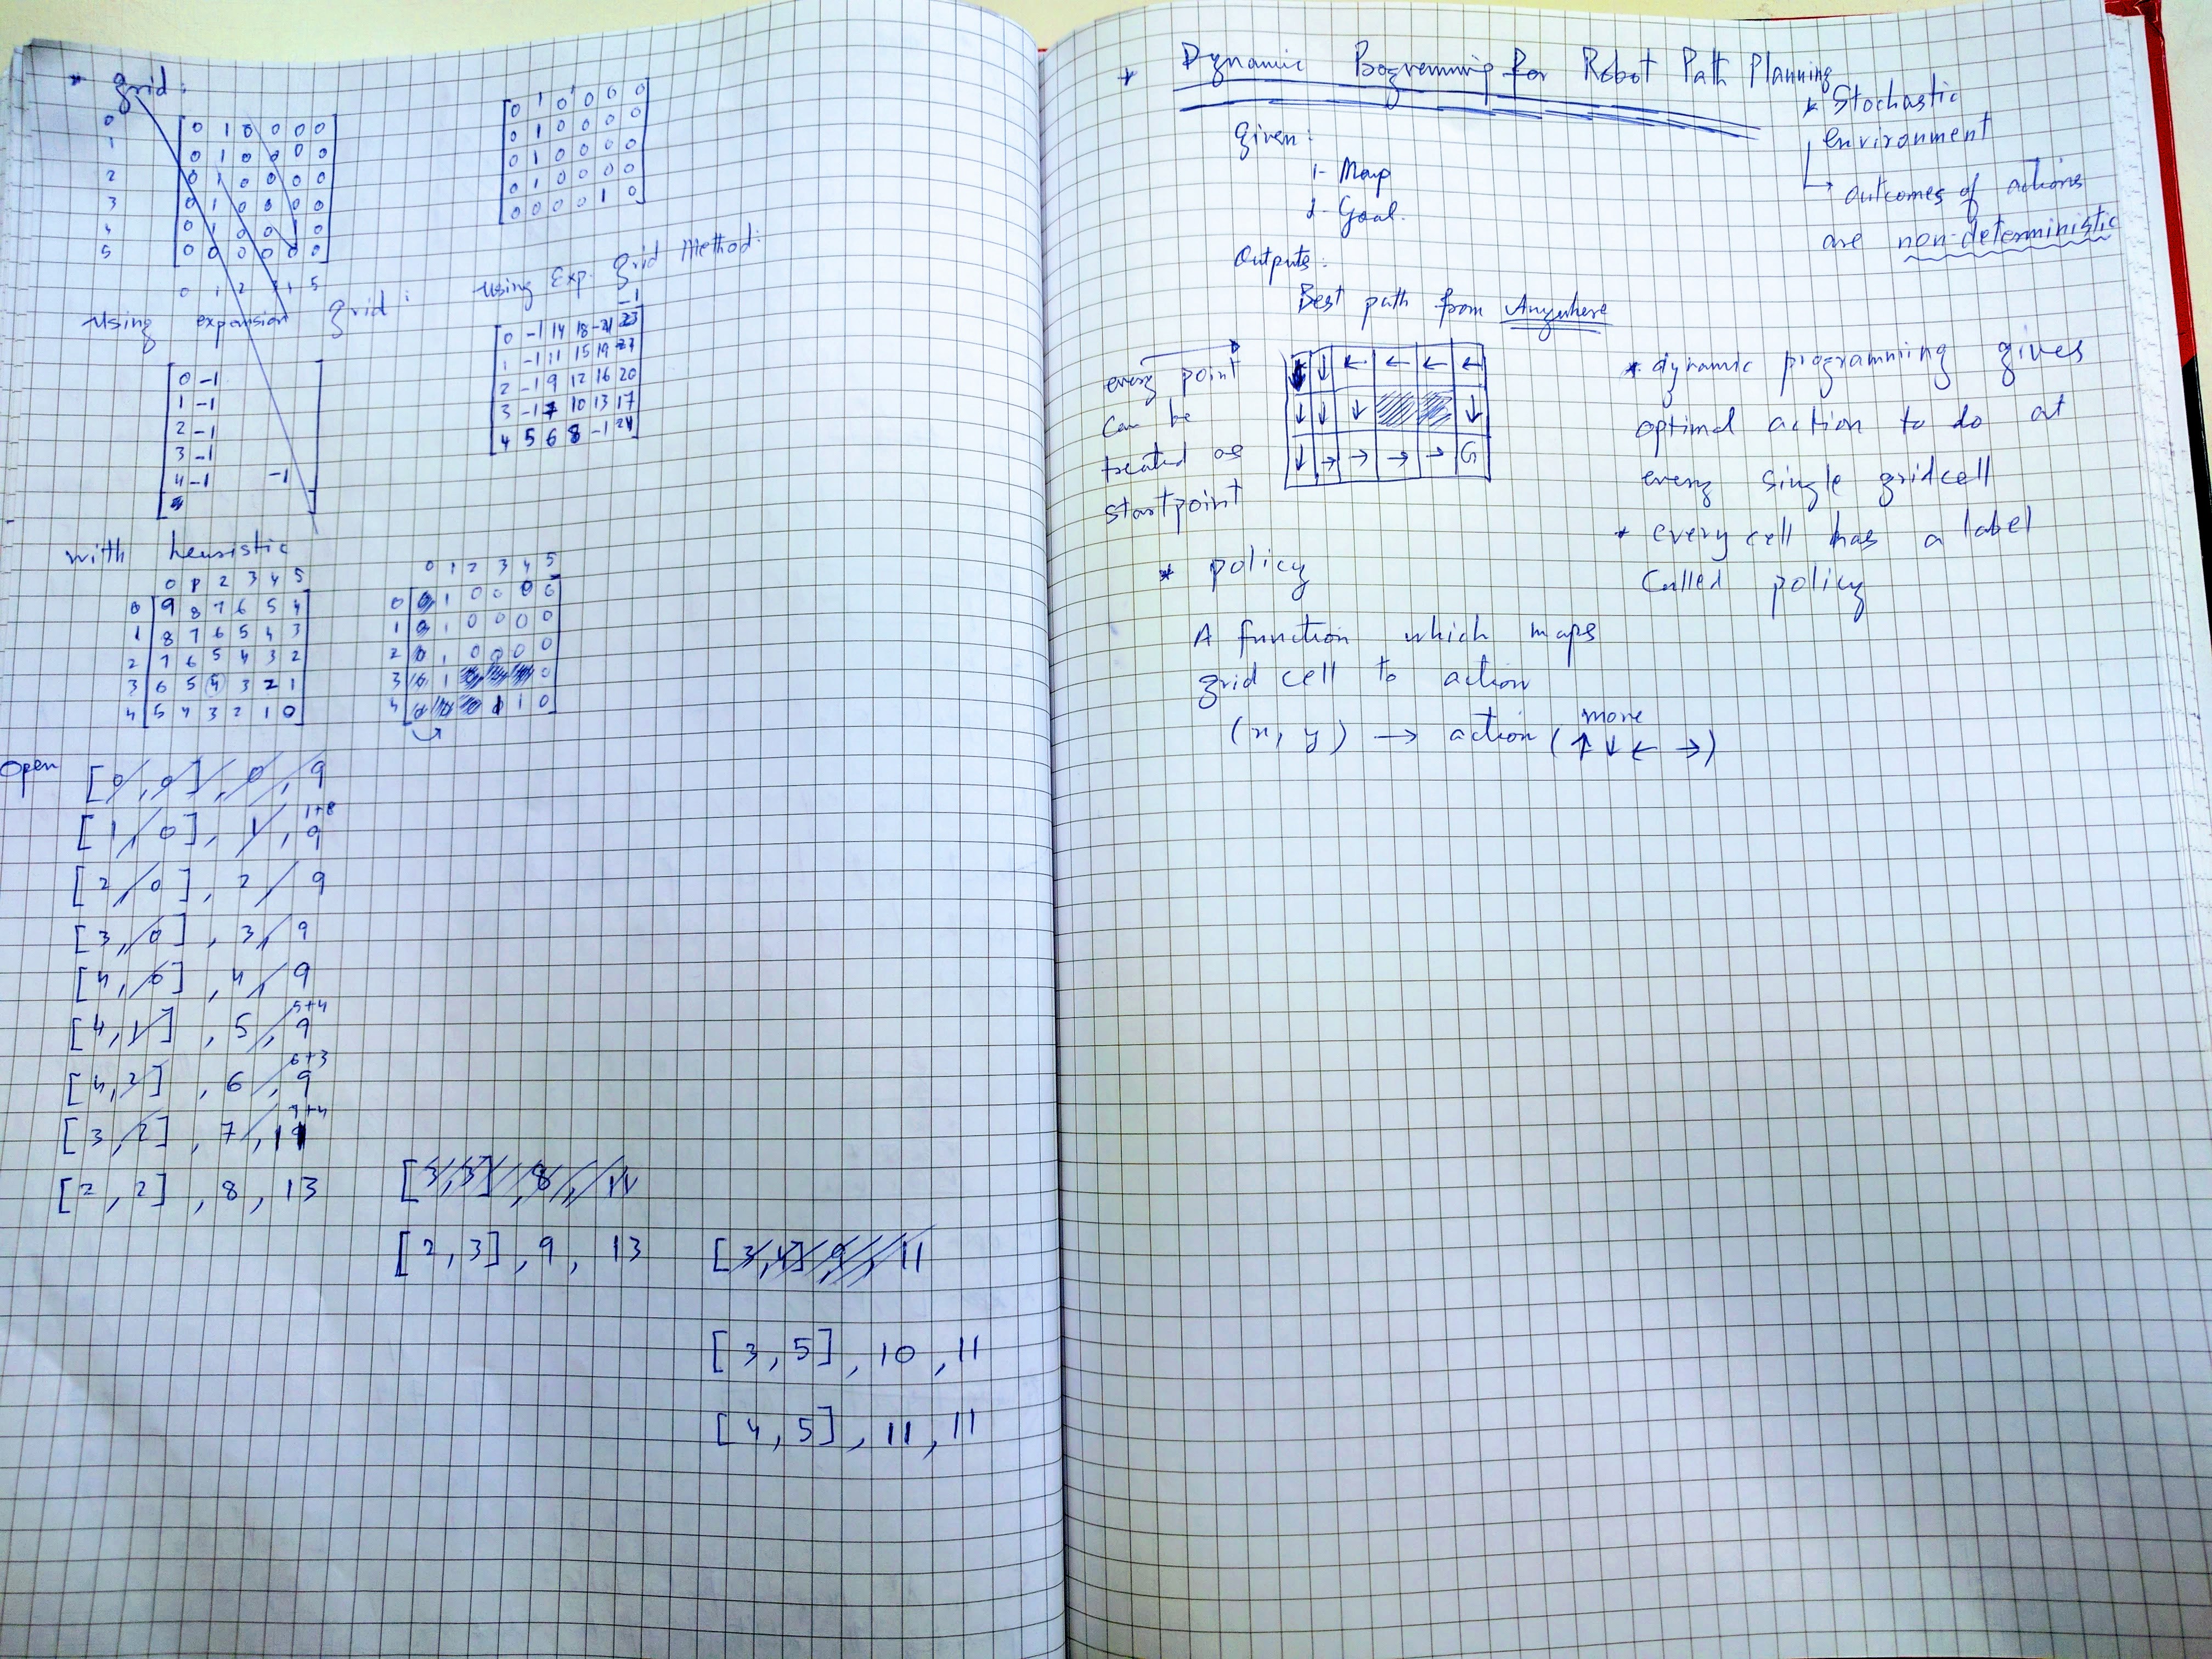 * grid:
0 [ 0 1 0 0 0 0
1 0 1 0 0 0 0
2 0 1 0 0 0 0
3 0 1 0 0 0 0
4 0 1 0 0 1 0
5 0 0 0 0 0 0 ]
0 1 2 3 4 5
[ 0 1 0 0 0 0
0 1 0 0 0 0
0 1 0 0 0 0
0 1 0 0 0 0
0 0 0 0 1 0 ]
Using expansion grid:
[ 0 -1
1 -1
2 -1
3 -1
4 -1 -1
5 ]
Using Exp. grid Method:
-1
[ 0 -1 14 18 -21 23
1 -1 11 15 19
2 -1 9 12 16 20
3 -1 7 10 13 17
4 5 6 8 -1 21 ]
with heuristic
0 1 2 3 4 5
0 [ 9 8 7 6 5 4
1 8 7 6 5 4 3
2 7 6 5 4 3 2
3 6 5 4 3 2 1
4 5 4 3 2 1 0 ]
0 1 2 3 4 5
0 [ 0 1 0 0 0 0
1 0 1 0 0 0 0
2 0 1 0 0 0 0
3 0 1 0
4 1 0 ]
Open [0,0], 0, 9
1+8
[1,0], 1, 9
[2,0], 2, 9
[3,0], 3, 9
[4,0], 4, 9
5+4
[4,1], 5, 9
6+3
[4,2], 6, 9
7+4
[3,2], 7, 11
[2,2], 8, 13 [3,3], 8, 11
[2,3], 9, 13 [3,4], 9, 11
[3,5], 10, 11
[4,5], 11, 11
* Dynamic Programming for Robot Path Planning
* Stochastic
environment
↳ outcomes of actions
are non-deterministic
Given:
1- Map
2- Goal.
Outputs:
Best path from Anywhere
every point
can be
treated as
startpoint
↓ ↓ ← ← ← ←
↓ ↓ ↓ ↓
↓ → → → → G
* dynamic programming gives
optimal action to do at
every single gridcell
* every cell has a label
Called policy
* policy
A function which maps
grid cell to action
move
(x, y) → action (↑ ↓ ← →)